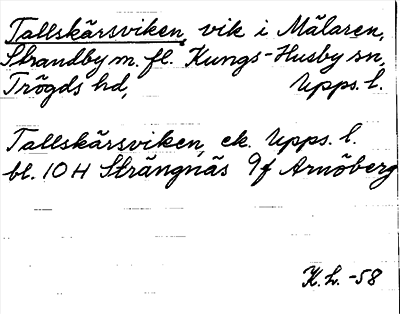 Tallskärsviken, vik i Mälaren,
Strandby m. fl. Kungs-Husby sn,
Trögds hd, Upps. l.
Tallskärsviken, ek. Upps. l.
bl. 10H Strängnäs 9f Arnöberg
K.L. -58